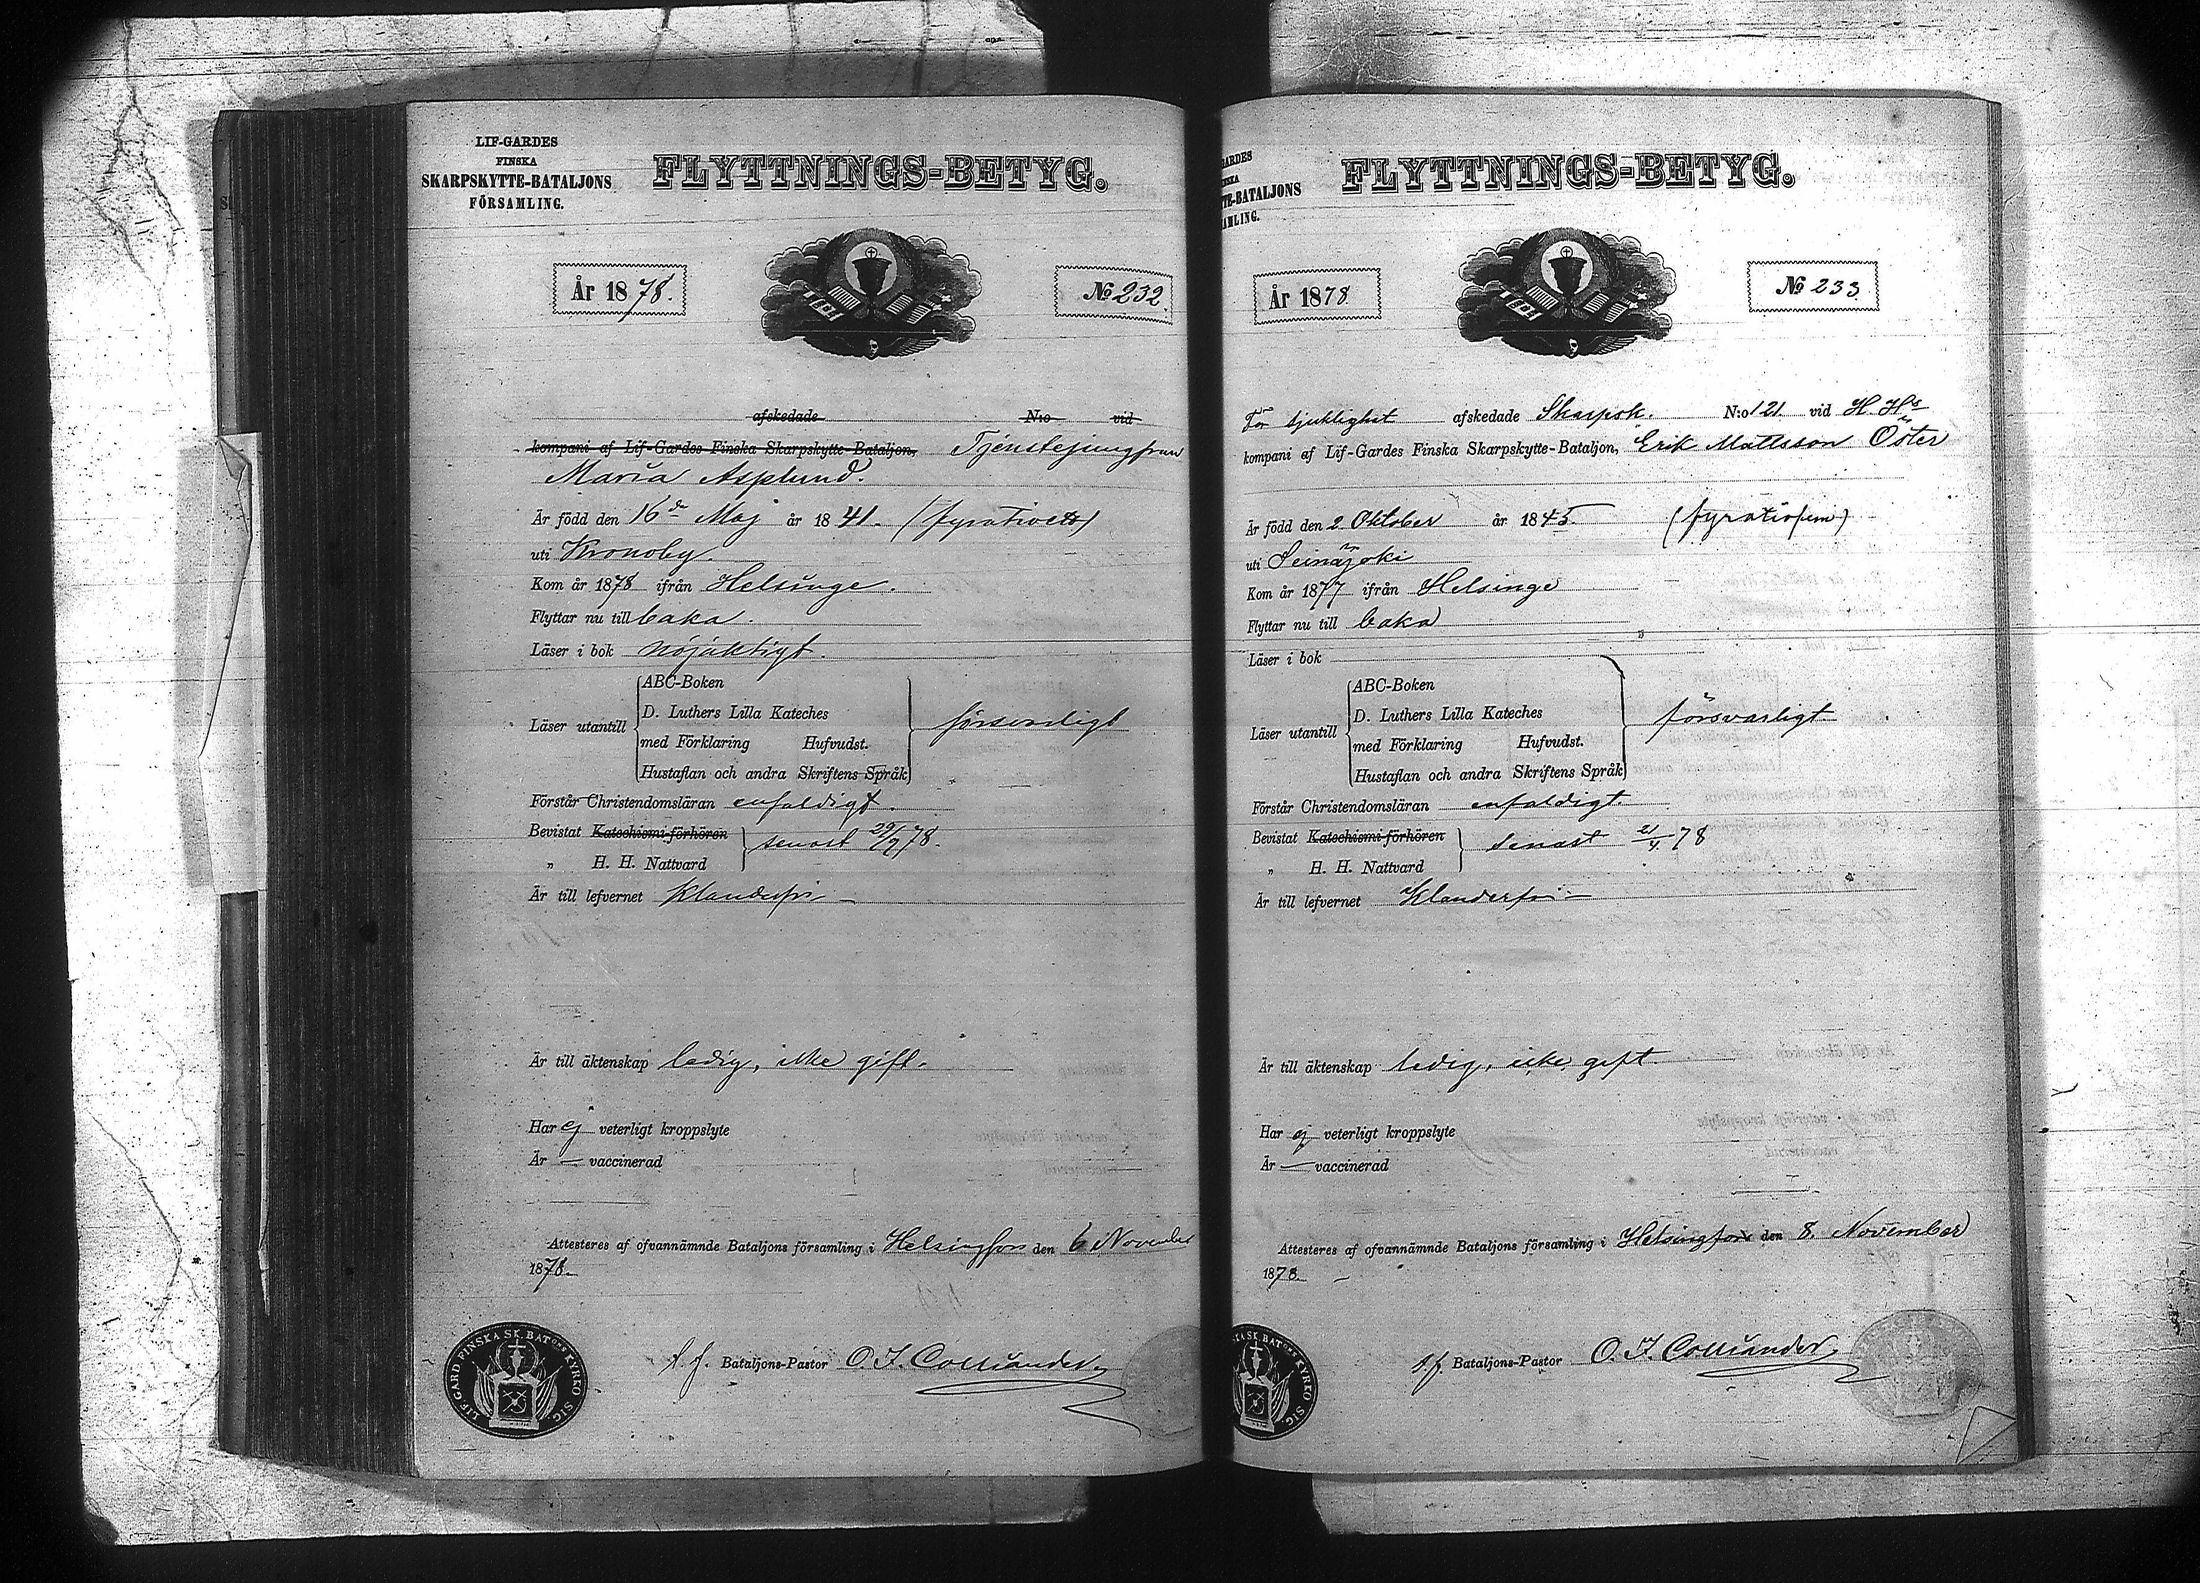 LIF-GARDES
FINSKA
SKARPSKYTTE-BATALJONS
FÖRSAMLING.
FLYTTNINGS-BETYG.
År 1878.
No 232
afskedade N:o vid
kompani af Lif-Gardes Finska Skarpskytte-Bataljon, Tjenstejungfrun
Maria Asplund.
Är född den 16de Maj år 1841. (fyratioett)
uti Kronoby.
Kom år 1878 ifrån Helsinge.
Flyttar nu till baka.
Läser i bok nöjaktigt.
ABC-Boken
D. Luthers Lilla Kateches
Läser utantill försvarligt
med Förklaring Hufvudst.
Hustaflan och andra Skriftens Språk
Förstår Christendomsläran enfaldigt.
Bevistat Katechismi-förhören senast 29/9 78.
" H. H. Nattvard
Är till lefvernet Klanderfri
Är till äktenskap ledig, icke gift.
Har ej veterligt kroppslyte
Är — vaccinerad
Attesteres af ofvannämnde Bataljons församling i Helsingfors den 6 November
1878.
Bataljons-Pastor
LIF-GARD. FINSKA SK. BATONS KYRKO SIG.
GARDES
SKA
TE-BATALJONS
AMLING.
FLYTTNINGS-BETYG.
År 1878
No 233
För sjuklighet afskedade Skarpsk. N:o 121 vid H. Hs
kompani af Lif-Gardes Finska Skarpskytte-Bataljon, Erik Mattsson Öster
Är född den 2 Oktober år 1845. (fyratiofem)
uti Seinäjoki
Kom år 1877 ifrån Helsinge
Flyttar nu till baka
Läser i bok
ABC-Boken
D. Luthers Lilla Kateches
Läser utantill försvarligt
med Förklaring Hufvudst.
Hustaflan och andra Skriftens Språk
Förstår Christendomsläran enfaldigt.
Bevistat Katechismi-förhören senast 21/4 78
" H. H. Nattvard
Är till lefvernet Klanderfri
Är till äktenskap ledig, icke gift
Har ej veterligt kroppslyte
Är — vaccinerad
Attesteres af ofvannämnde Bataljons församling i Helsingfors den 8. November
1878
Bataljons-Pastor
SKA SK. BATONS KYRKO SIG.